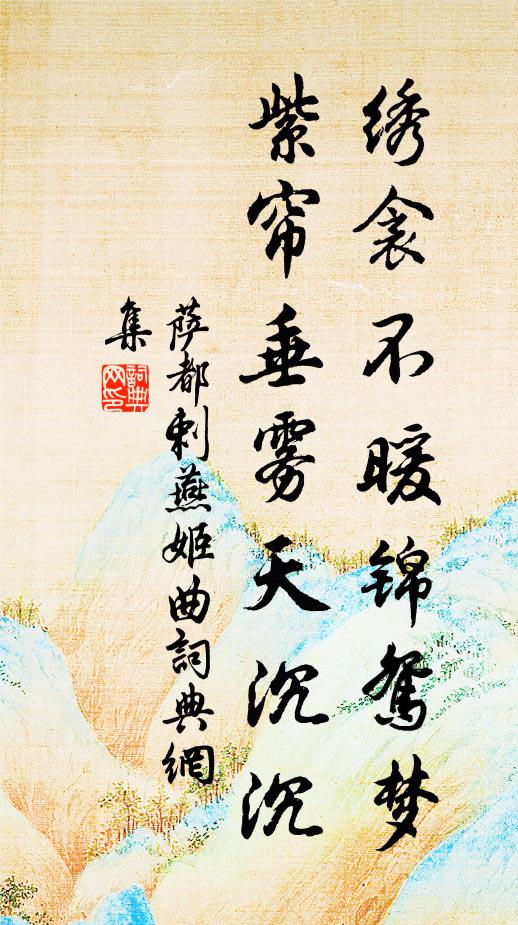 绣衾不暖锦鸳梦
紫帘垂雾天沉沉
萨都剌燕姬曲詞典網
集
詞典网印